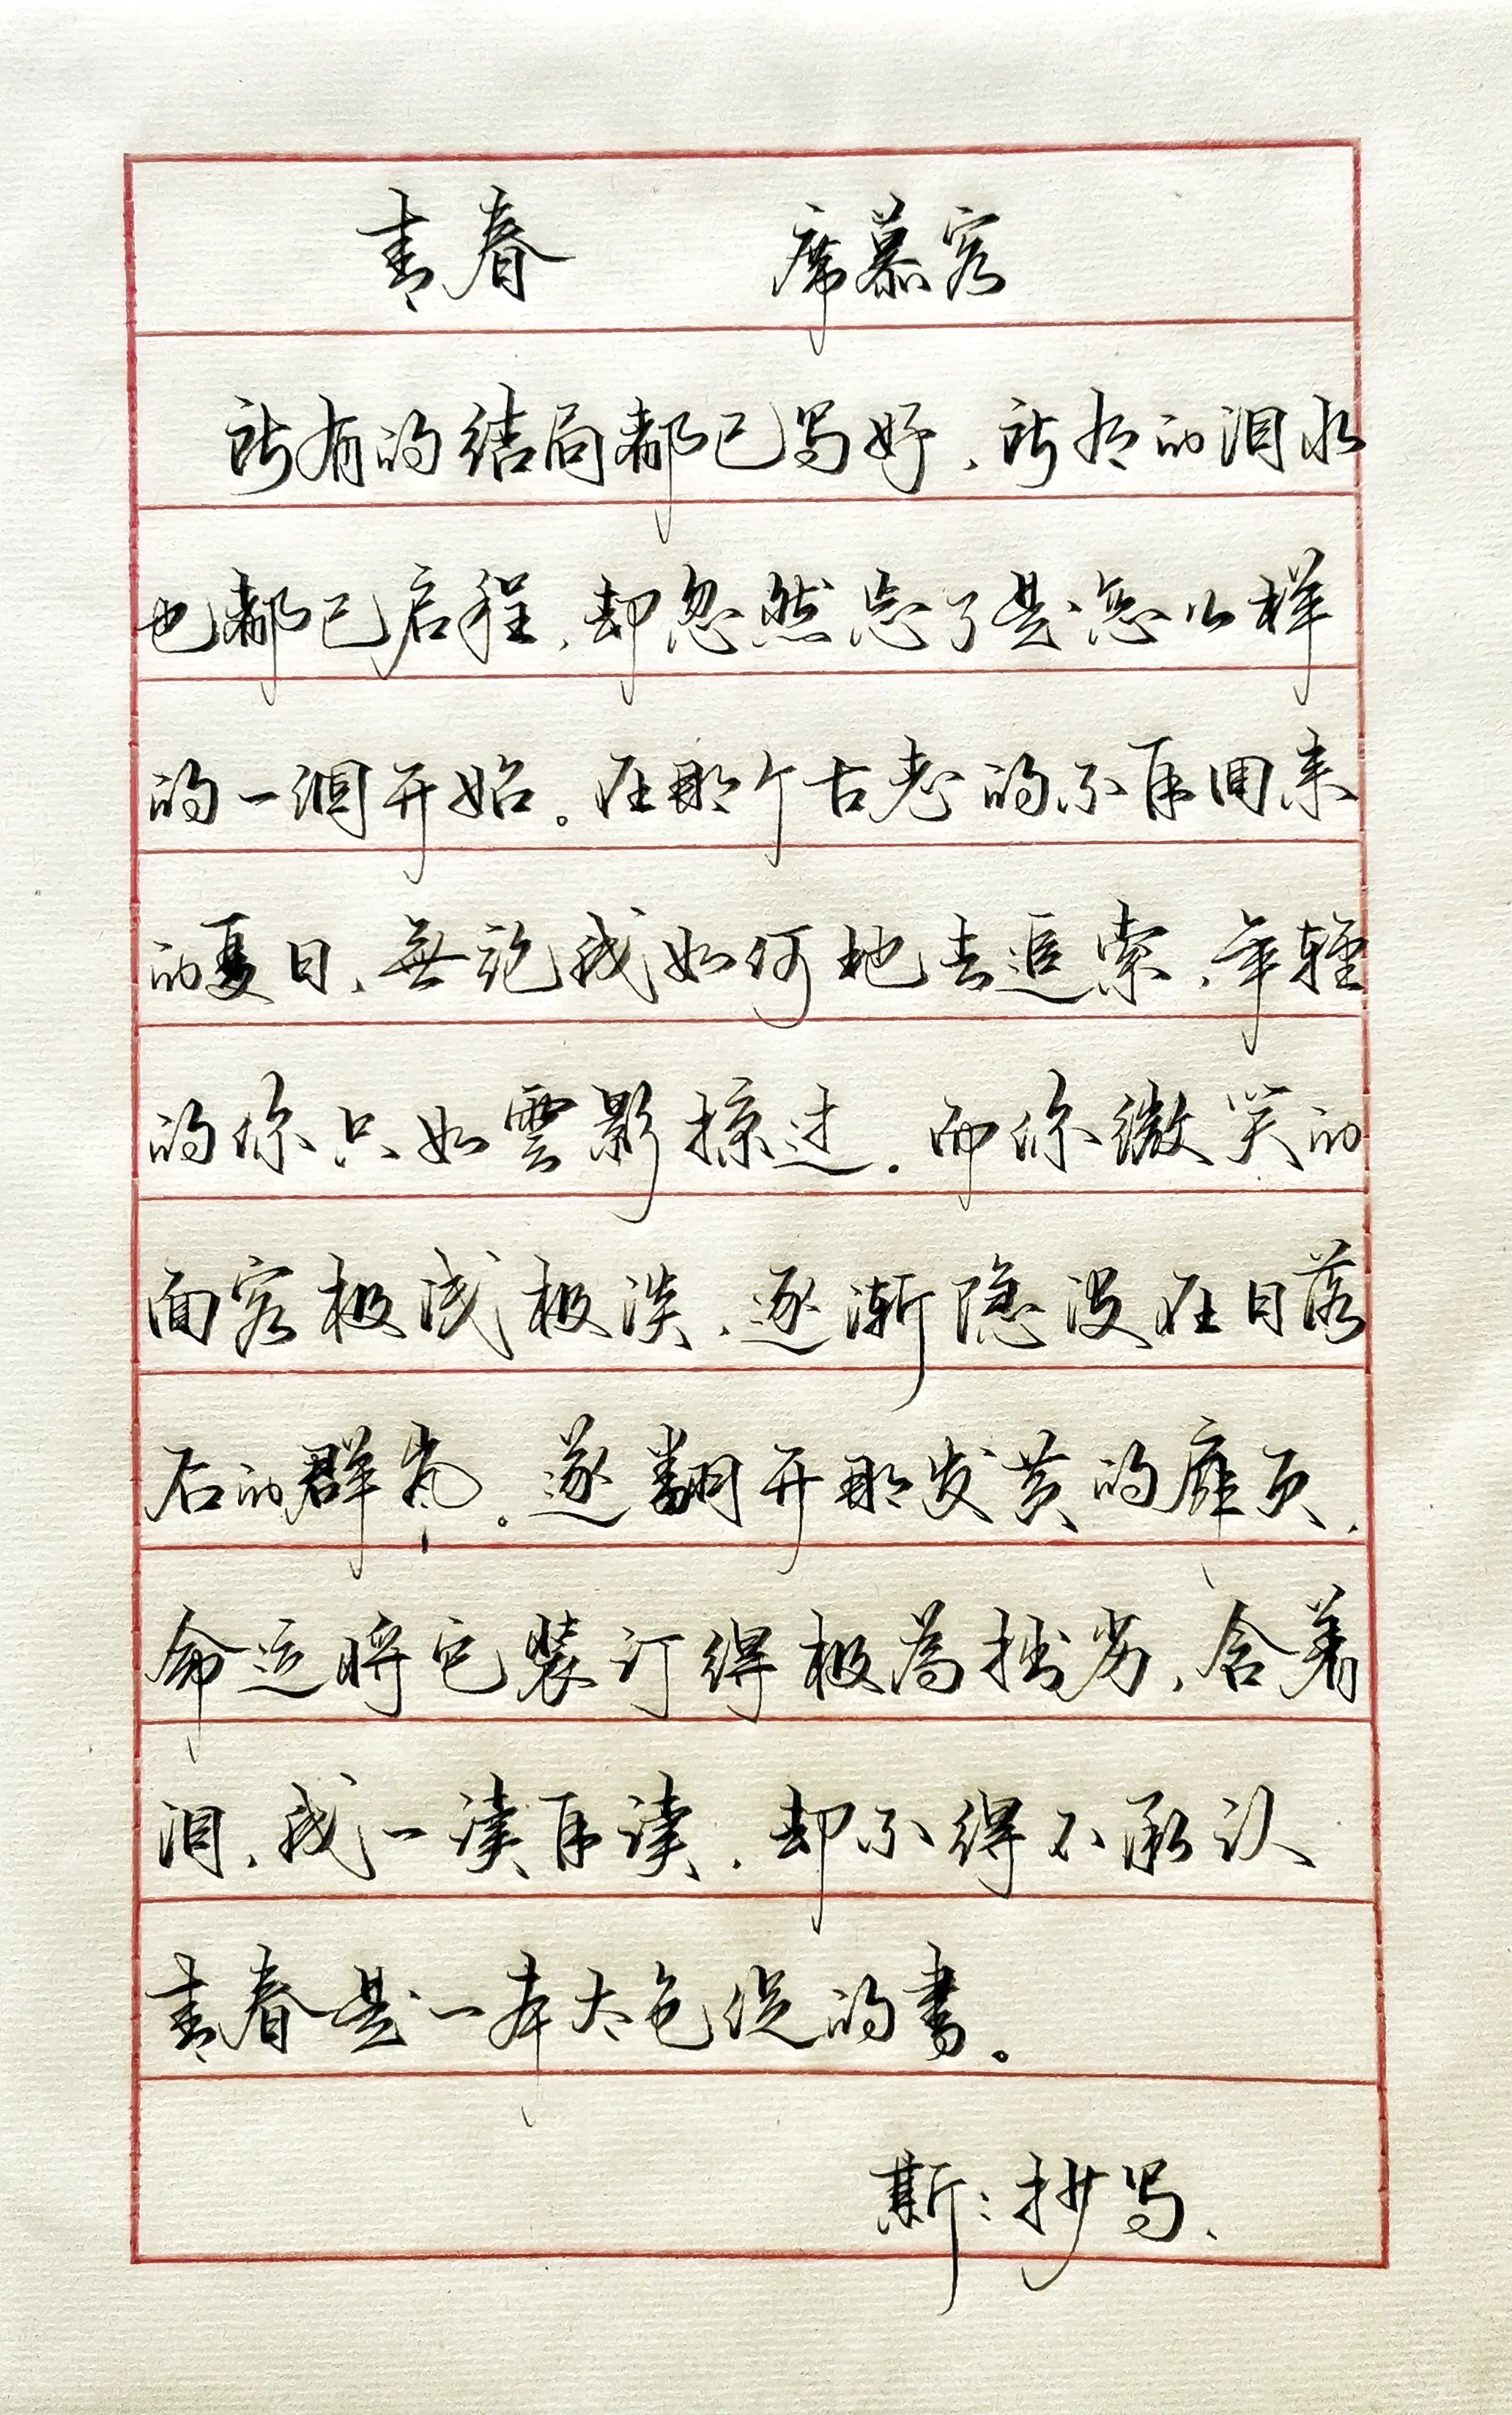 青春 席慕容
所有的结局都已写好，所有的泪水
也都已启程，却忽然忘了是怎么样
的一個开始。在那个古老的不再回来
的夏日，無论我如何地去追索，年轻
的你只如雲影掠过。而你微笑的
面容极浅极淡，逐渐隐没在日落
后的群岚。遂翻开那发黄的扉页，
命运将它装订得极为拙劣，含着
泪，我一读再读，却不得不承认
青春是一本太仓促的書。
斯：抄写、